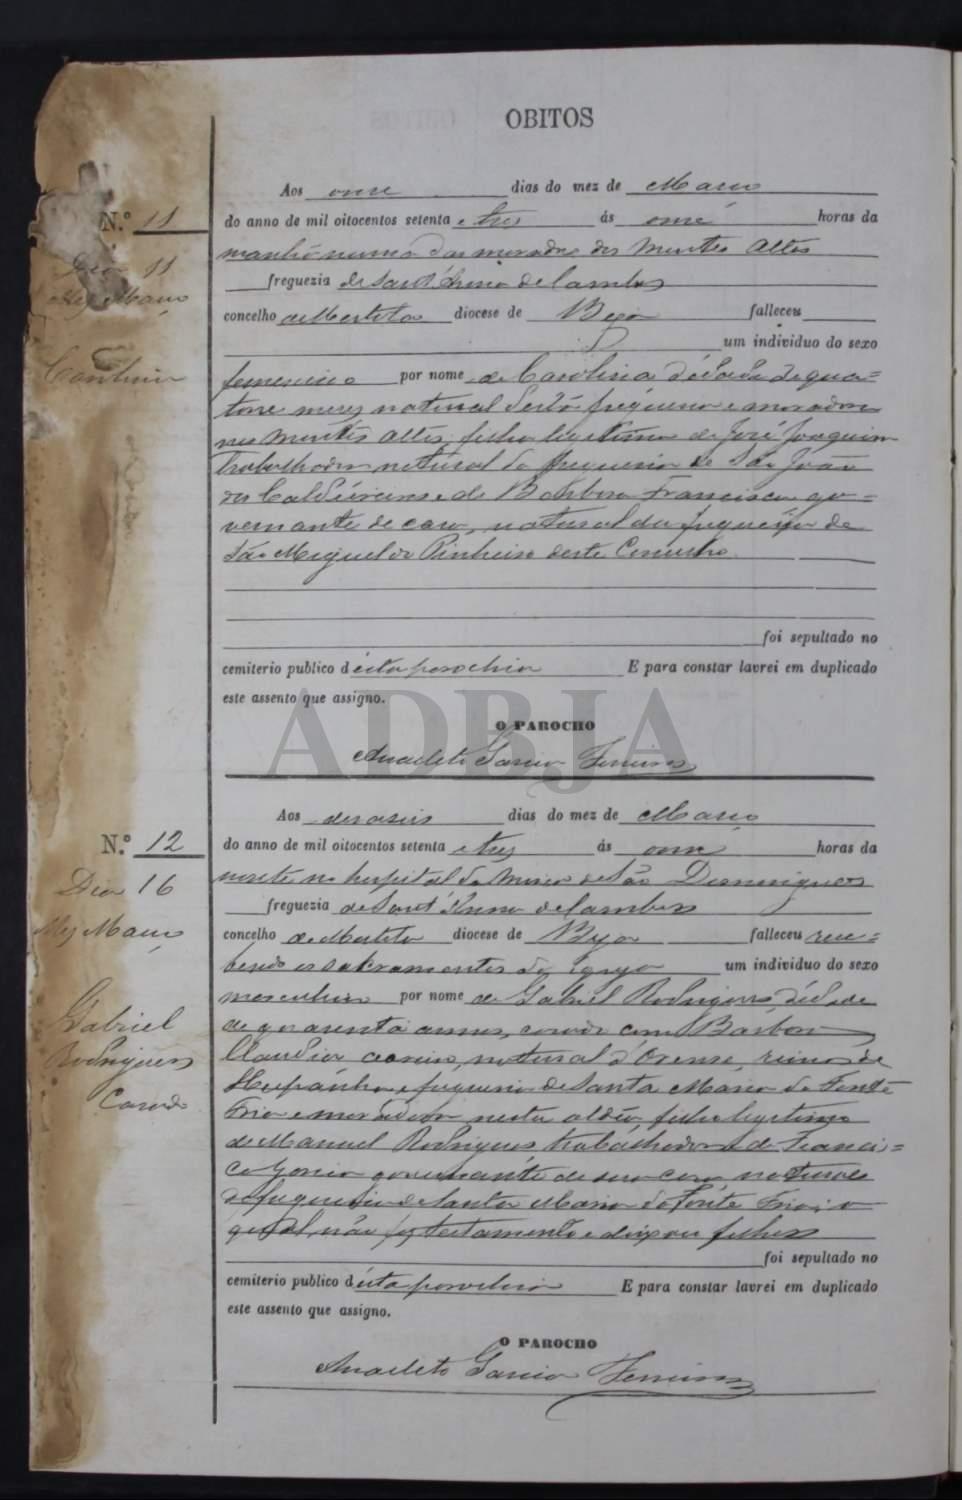 OBITOS
Aos onze dias do mez de Março
N.º 11
do anno de mil oitocentos setenta e tres ás onze horas da
manhã numa das moradas dos Montes Altos
Dia 11
freguezia de Sant'Anna de Cambas
Mez Março
concelho de Mertola diocese de Beja falleceu
um individuo do sexo
Carolina
femenino por nome de Carolina d'idade de qua=
torze mezes natural desta freguesia e moradora
nos Montes Altos, filha legitima de José Joaquim
trabalhador natural da freguesia de São João
dos Caldeireiros e de Barbora Francisca go=
vernante de casa, natural da freguesia de
São Miguel do Pinheiro deste Concelho
foi sepultado no
cemiterio publico d'esta parochia E para constar lavrei em duplicado
este assento que assigno.
ADBJA
O PAROCHO
Anacleto Garcia Ferreira
Aos desaseis dias do mez de Março
N.º 12
do anno de mil oitocentos setenta e tres ás onze horas da
Dia 16
noute no hospital da Mina de São Domingos
freguezia de Sant'Anna de Cambas
Mez Março
concelho de Mertola diocese de Beja falleceu rece=
bendo os sacramentos da Igreja um individuo do sexo
masculino por nome de Gabriel Rodrigues, d'idade
Gabriel
Rodrigues
Casado
de quarenta annos, casado com Barbora
Claudia natural d'Orense, reino de
Hespanha e freguesia de Santa Maria da Fonte
Fria e morador nesta aldêa filho legitimo
de Manuel Rodrigues, trabalhador e de Francis=
ca Garcia governante de sua casa, naturaes
da freguesia de Santa Maria da Fonte Fria; o
qual não fez testamento e deixou filhos
foi sepultado no
cemiterio publico d'esta parochia E para constar lavrei em duplicado
este assento que assigno.
O PAROCHO
Anacleto Garcia Ferreira